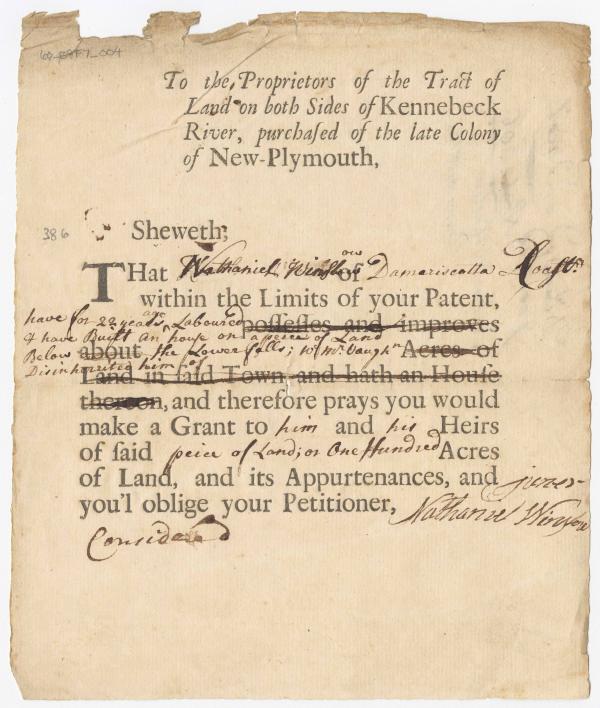 69-8977_004
To the Proprietors of the Tract of
Land on both Sides of Kennebeck
River, purchaſed of the late Colony
of New-Plymouth,
386
Sheweth;
THat Nathaniel Winslow of Damariscotta
within the Limits of your Patent,
have for 22 years Laboured poſſeſſes and improves
& have Built an house on a peice of Land
about Below the Lower falls; Acres of
Disinherited him of
Land in ſaid Town and hath an Houſe
thereon, and therefore prays you would
make a Grant to him and his Heirs
of ſaid peice of Land; or One Hundred Acres
of Land, and its Appurtenances, and
you'l oblige your Petitioner,
Nathaniel Winslow
Considered